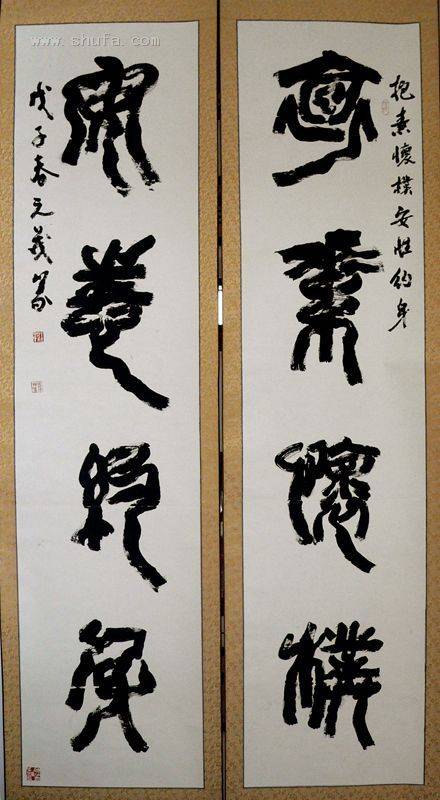 www.shufa.com
抱素懷樸
抱素懷樸安性約身
安性約身
戊子春元義篆